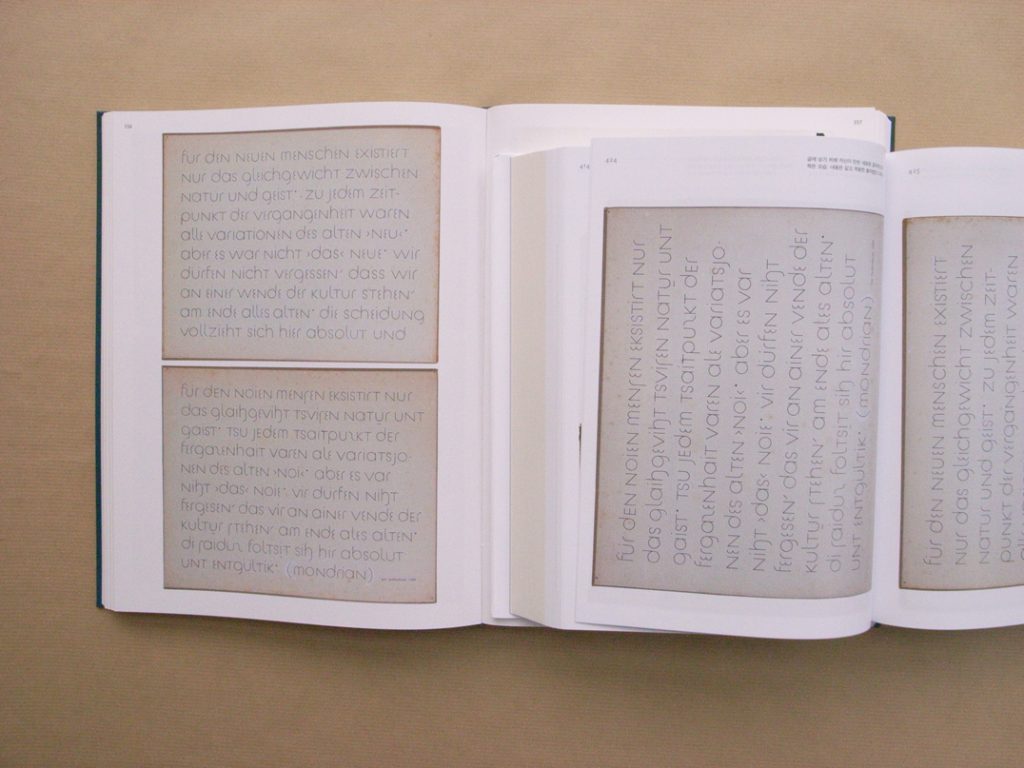 für den neuen menschen existiert
nur das gleichgewicht zwischen
natur und geist· zu jedem zeit-
punkt der vergangenheit waren
alle variationen des alten ›neu‹·
aber es war nicht ›das‹ neue· wir
dürfen nicht vergessen' dass wir
an einer wende der kultur stehen'
am ende alles alten· die scheidung
vollzieht sich hier absolut und
für den noien menʃen eksistirt nur
das glaiɧgeviɧt tsviʃen natur unt
gaist· tsu jedem tsaitpuŋkt der
fergaŋenhait varen ale variatsjo-
nen des alten ›noi‹· aber es var
niɧt ›das‹ noie· vir dürfen niɧt
fergesen' das vir an ainer vende der
kultur ʃtehen' am ende ales alten·
di ʃaiduŋ foltsit siɧ hir absolut
unt entgültik· (mondrian)
357
424
für den noien menʃen eksistirt nur
das glaiɧgeviɧt tsviʃen natur unt
gaist· tsu jedem tsaitpuŋkt der
fergaŋenhait varen ale variatsjo-
nen des alten ›noi‹· aber es var
niɧt ›das‹ noie· vir dürfen niɧt
fergesen' das vir an ainer vende der
kultur ʃtehen' am ende ales alten·
di ʃaiduŋ foltsit siɧ hir absolut
unt entgültik· (mondrian)
425
für den neuen menschen existiert
nur das gleichgewicht zwischen
natur und geist· zu jedem zeit-
punkt der vergangenheit waren